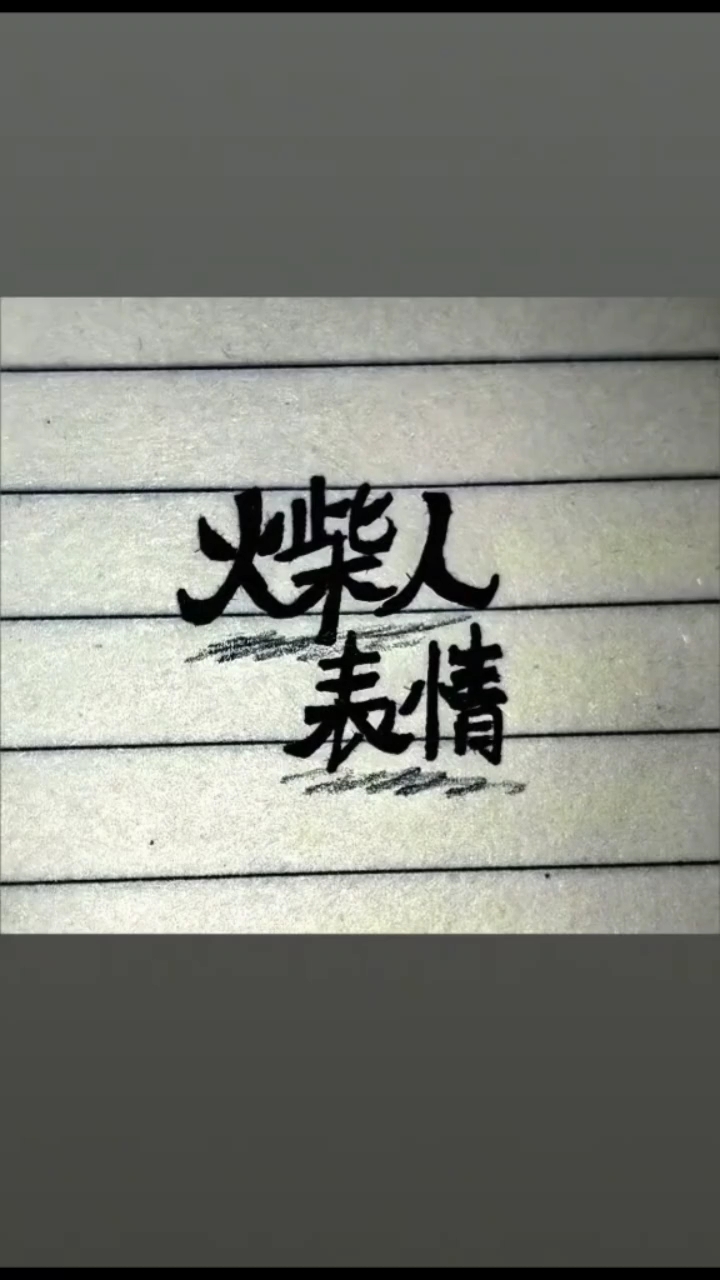 火柴人
表情